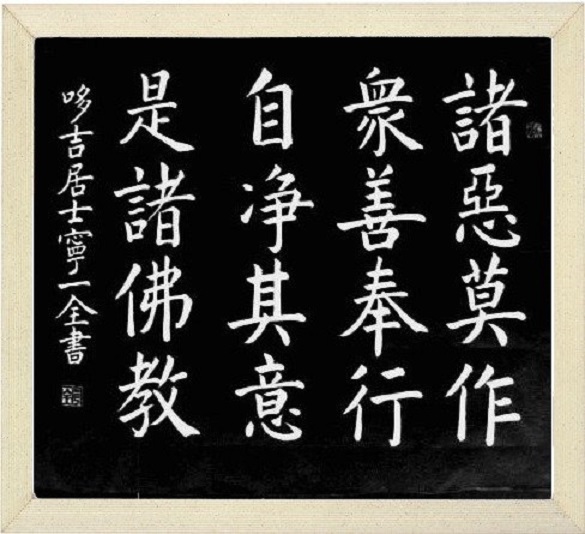 諸惡莫作
衆善奉行
自净其意
是諸佛教
哆吉居士寧一全書